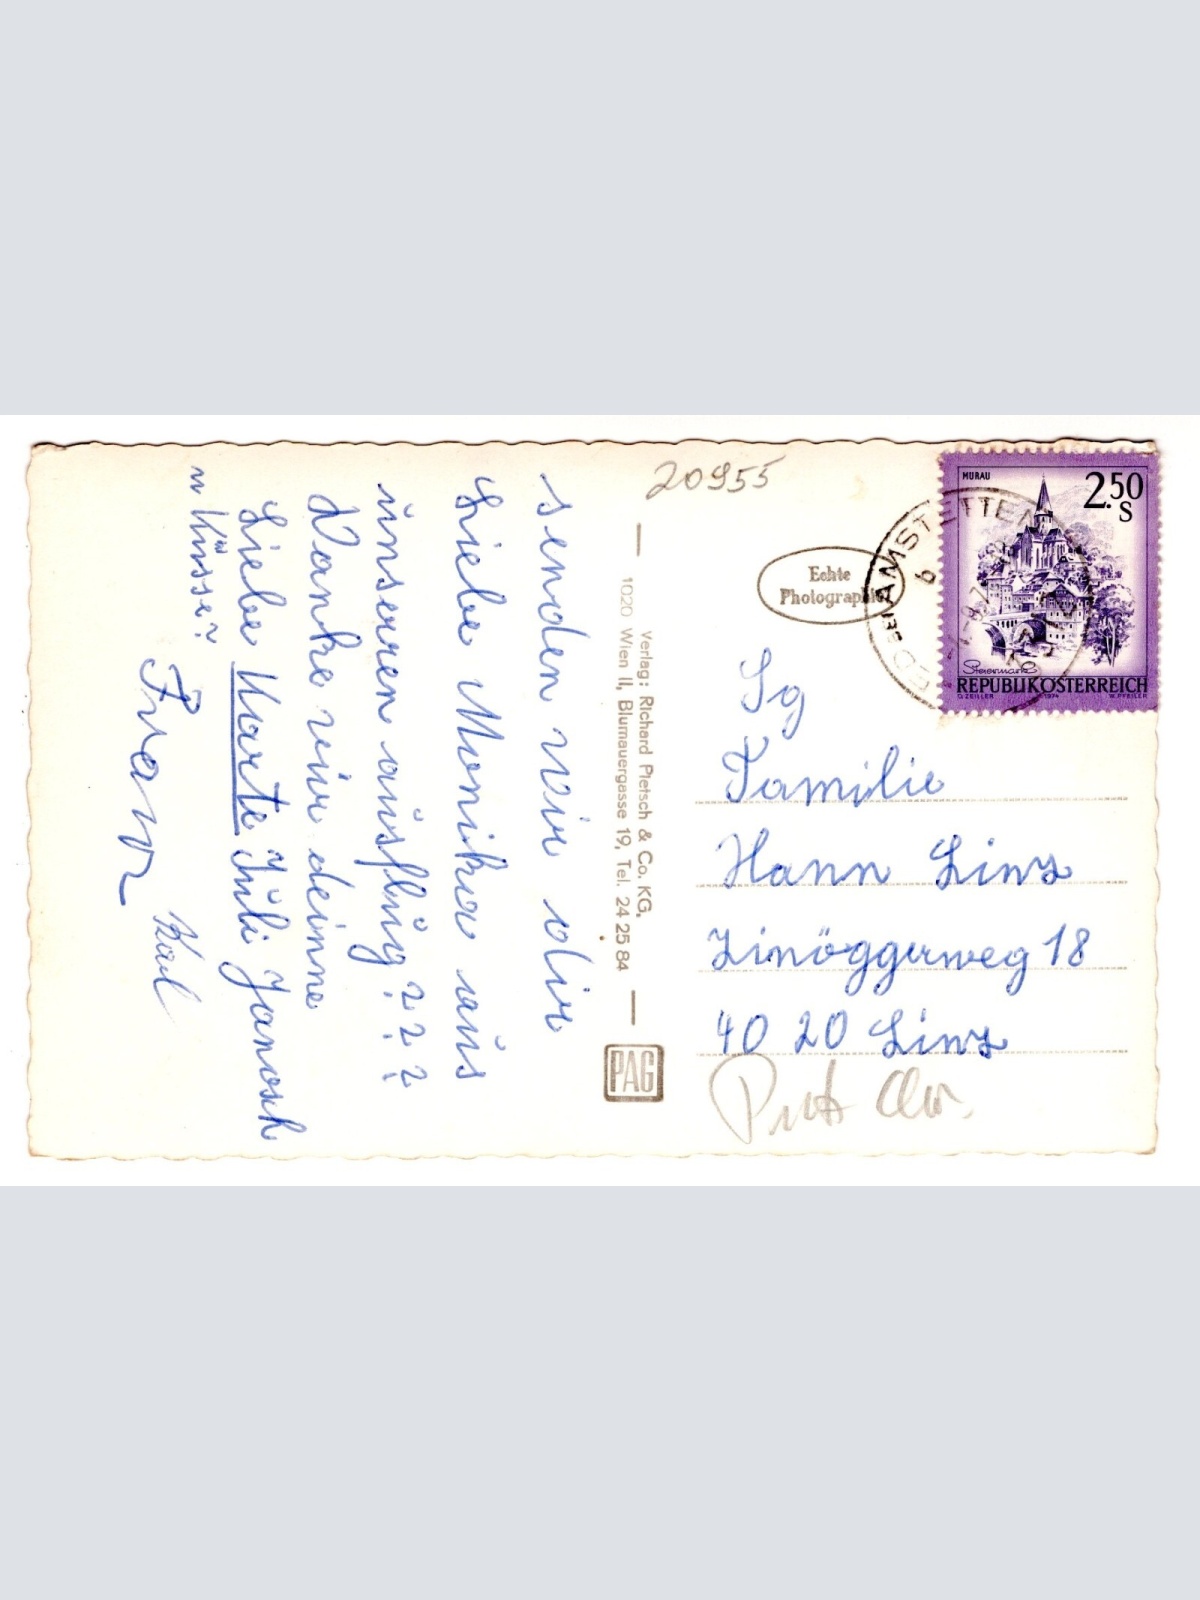 senden wir dir
Liebe Monika aus
unseren ausflug ? ? ?
Danke vür deinne
Liebe Karte Juli Janosch
u Küsse ?
Franz
Karl
20955
Verlag: Richard Pietsch & Co. KG.
1020 Wien II, Blumauergasse 19, Tel. 24 25 84
PAG
Echte
Photographie
AMSTETTEN
BEI
6
MURAU
2.50
S
Steiermark
REPUBLIK ÖSTERREICH
O. ZEILLER 1974 W. PFEILER
Sg
Familie
Hann Linz
Zinöggerweg 18
40 20 Linz